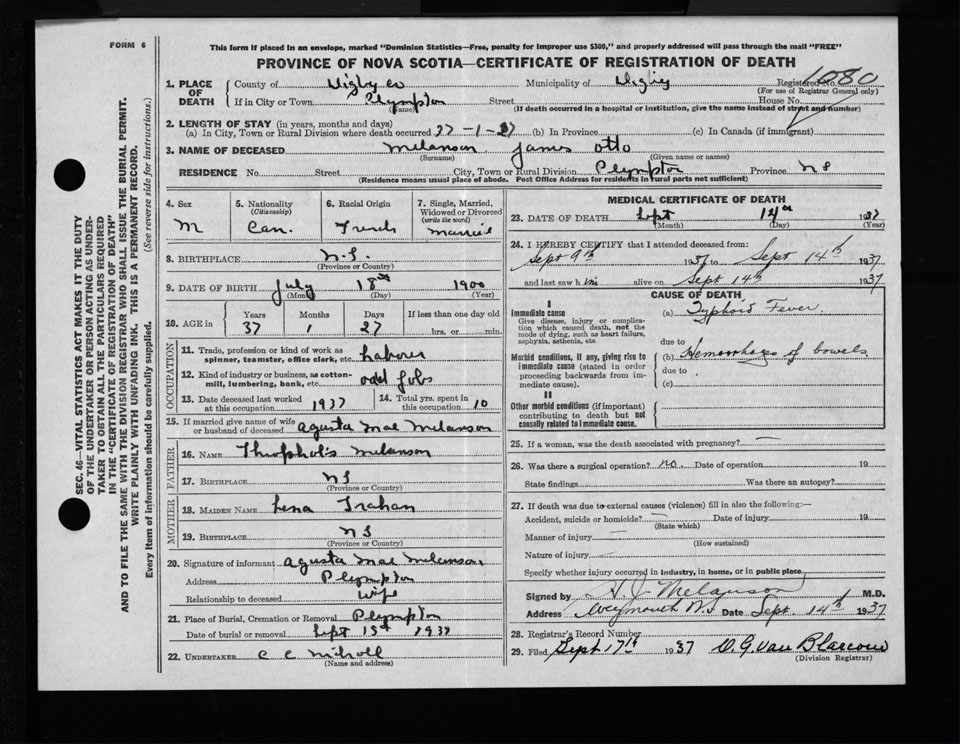 FORM 6
This form if placed in an envelope, marked "Dominion Statistics—Free, penalty for improper use $300," and properly addressed will pass through the mail "FREE"
PROVINCE OF NOVA SCOTIA—CERTIFICATE OF REGISTRATION OF DEATH
1. PLACE OF DEATH
County of Digby co Municipality of Digby Registered No. 1080
(For use of Registrar General only)
If in City or Town Plympton Street House No.
(Name) (If death occurred in a hospital or institution, give the name instead of street and number)
2. LENGTH OF STAY (in years, months and days)
(a) In City, Town or Rural Division where death occurred 27-1-37 (b) In Province (c) In Canada (if immigrant)
3. NAME OF DECEASED Melanson James Otto
(Surname) (Given name or names)
RESIDENCE No. Street City, Town or Rural Division Plympton Province N S
(Residence means usual place of abode. Post Office Address for residents in rural parts not sufficient)
4. Sex M
5. Nationality (Citizenship) Can.
6. Racial Origin French
7. Single, Married, Widowed or Divorced (write the word) Married
8. BIRTHPLACE N.S.
(Province or Country)
9. DATE OF BIRTH July 18th 1900
(Month) (Day) (Year)
10. AGE in Years Months Days If less than one day old
37 1 27 hrs. or min.
OCCUPATION
11. Trade, profession or kind of work as spinner, teamster, office clerk, etc. Laborer
12. Kind of industry or business, as cotton-mill, lumbering, bank, etc. odd jobs
13. Date deceased last worked at this occupation 1937
14. Total yrs. spent in this occupation 10
15. If married give name of wife or husband of deceased Agusta Mae Melanson
FATHER
16. NAME Melanson
17. BIRTHPLACE N S
(Province or Country)
MOTHER
18. MAIDEN NAME Lena Trahan
19. BIRTHPLACE N S
(Province or Country)
20. Signature of informant Agusta Mae Melanson
Address Plympton
Relationship to deceased Wife
21. Place of Burial, Cremation or Removal Plympton
Date of burial or removal Sept 15th 1937
22. UNDERTAKER C C
(Name and address)
MEDICAL CERTIFICATE OF DEATH
23. DATE OF DEATH Sept 14th 1937
(Month) (Day) (Year)
24. I HEREBY CERTIFY that I attended deceased from:
Sept 9th 1937 to Sept 14th 1937
and last saw him alive on Sept 14th 1937
CAUSE OF DEATH
I
Immediate cause
Give disease, injury or complication which caused death, not the mode of dying, such as heart failure, asphyxia, asthenia, etc.
(a) Typhoid Fever
due to
Morbid conditions, if any, giving rise to immediate cause (stated in order proceeding backwards from immediate cause).
(b) Hemorrhages of bowels
due to
(c)
II
Other morbid conditions (if important) contributing to death but not causally related to immediate cause.
25. If a woman, was the death associated with pregnancy? —
26. Was there a surgical operation? no. Date of operation 19
State findings Was there an autopsy?
27. If death was due to external causes (violence) fill in also the following:—
Accident, suicide or homicide? — Date of injury 19
(State which)
Manner of injury —
(How sustained)
Nature of injury —
Specify whether injury occurred in industry, in home, or in public place
Signed by H. J. Melanson M.D.
Address Weymouth N.S Date Sept. 14th 1937
28. Registrar's Record Number
29. Filed Sept 17th 1937 Van Blarcom
(Division Registrar)
SEC. 46—VITAL STATISTICS ACT MAKES IT THE DUTY
OF THE UNDERTAKER OR PERSON ACTING AS UNDER-
TAKER TO OBTAIN ALL THE PARTICULARS REQUIRED
IN THE "CERTIFICATE OF REGISTRATION OF DEATH"
AND TO FILE THE SAME WITH THE DIVISION REGISTRAR WHO SHALL ISSUE THE BURIAL PERMIT.
WRITE PLAINLY WITH UNFADING INK. THIS IS A PERMANENT RECORD.
Every item of information should be carefully supplied. (See reverse side for instructions.)